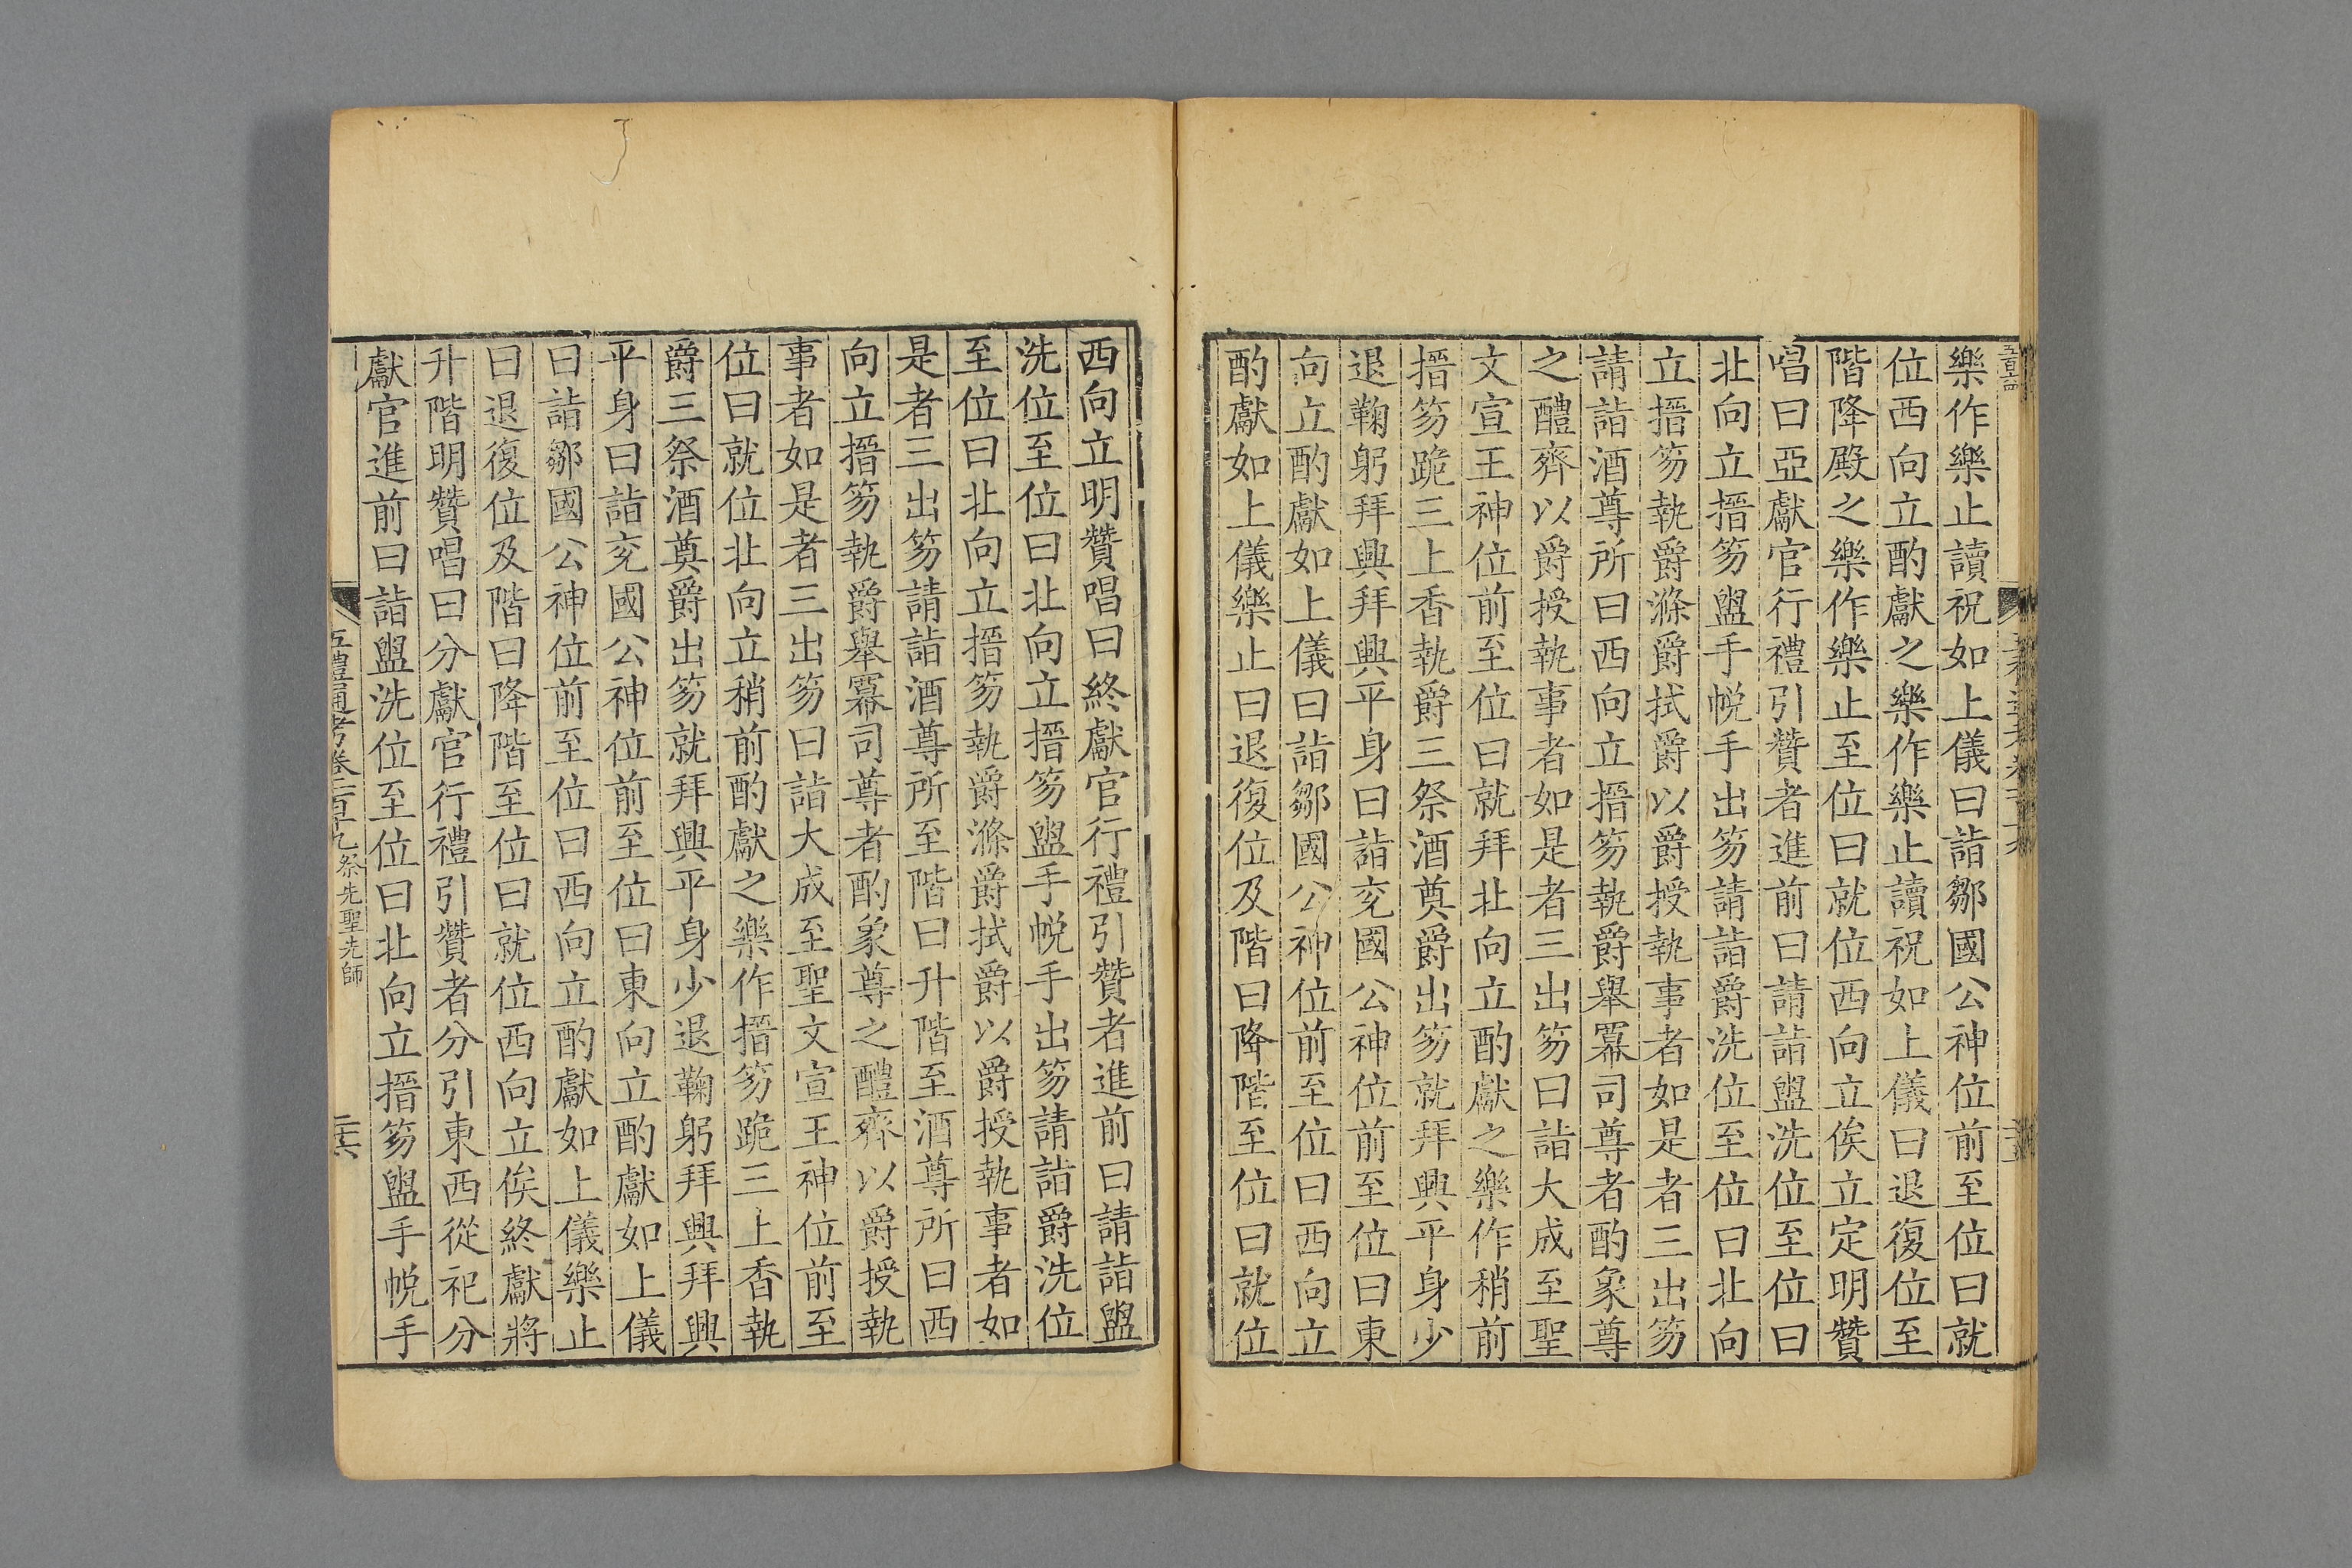 樂作樂止讀祝如上儀曰詣鄒國公神位前至位曰就
位西向立酌獻之樂作樂止讀祝如上儀曰退復位至
階降殿之樂作樂止至位曰就位西向立俟立定明贊
唱曰亞獻官行禮引贊者進前曰請詣盥洗位至位曰
北向立搢笏盥手帨手出笏請詣爵洗位至位曰北向
立搢笏執爵滌爵拭爵以爵授執事者如是者三出笏
請詣酒尊所曰西向立搢笏執爵舉冪司尊者酌象尊
之醴齊以爵授執事者如是者三出笏曰詣大成至聖
文宣王神位前至位曰就拜北向立酌獻之樂作稍前
搢笏跪三上香執爵三祭酒奠爵出笏就拜興平身少
退鞠躬拜興拜興平身曰詣兗國公神位前至位曰東
向立酌獻如上儀曰詣鄒國公神位前至位曰西向立
酌獻如上儀樂止曰退復位及階曰降階至位曰就位
西向立明贊唱曰終獻官行禮引贊者進前曰請詣盥
洗位至位曰北向立搢笏盥手帨手出笏請詣爵洗位
至位曰北向立搢笏執爵滌爵拭爵以爵授執事者如
是者三出笏請詣酒尊所至階曰升階至酒尊所曰西
向立搢笏執爵舉冪司尊者酌象尊之醴齊以爵授執
事者如是者三出笏曰詣大成至聖文宣王神位前至
位曰就位北向立稍前酌獻之樂作搢笏跪三上香執
爵三祭酒奠爵出笏就拜興平身少退鞠躬拜興拜興
平身曰詣兗國公神位前至位曰東向立酌獻如上儀
曰詣鄒國公神位前至位曰西向立酌獻如上儀樂止
曰退復位及階曰降階至位曰就位西向立俟終獻將
升階明贊唱曰分獻官行禮引贊者分引東西從祀分
獻官進前曰詣盥洗位至位曰北向立搢笏盥手帨手
五禮通考卷一百十九祭先聖先師